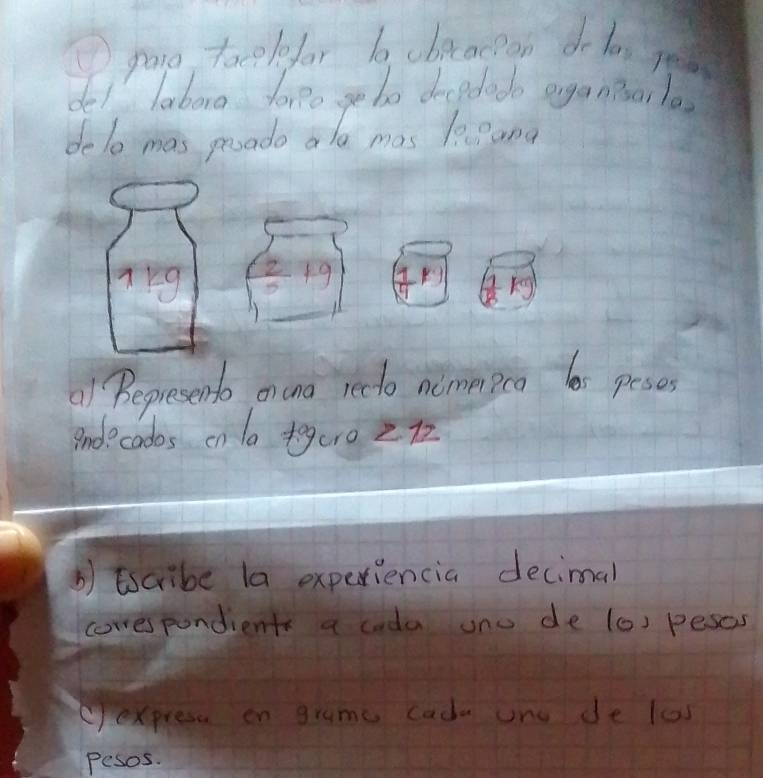 para facilitar la ubicacion de las pesas
del labora torio se ha decidido organisarlas
de lo mas pesado a la mas liviana
1 kg 2/5 kg 1/4 kg 1/8 kg
a) Representa en una recta númerica los pesos
indicados en la figura 2 12
b) Escribe la experiencia decimal
correspondiente a cada uno de los pesos
c) expresa en gramo cada uno de los
pesos.